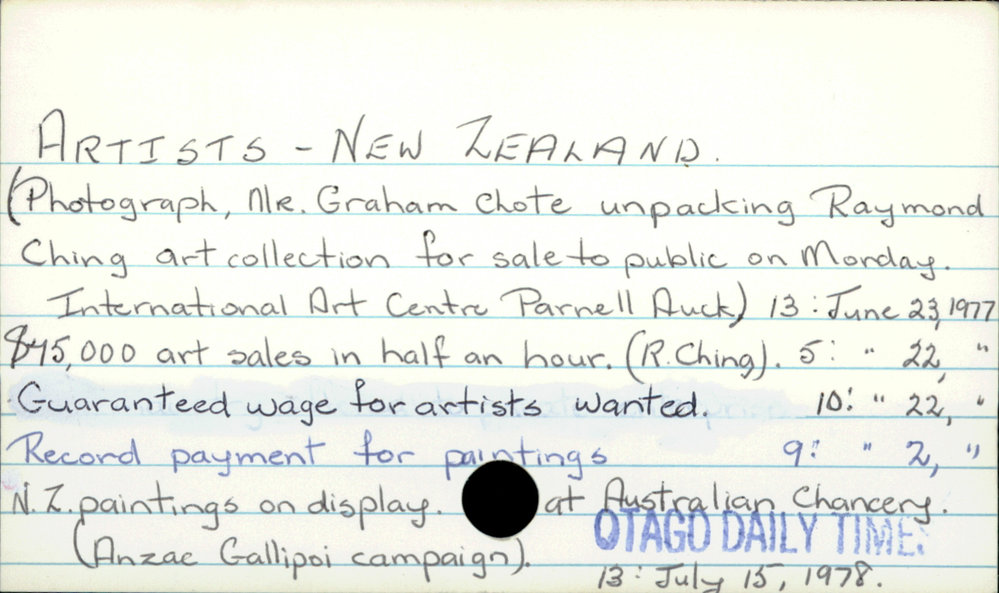 ARTISTS - NEW ZEALAND.
(Photograph, MR. Graham Chote unpacking Raymond
Ching art collection for sale to public on Monday.
International Art Centre Parnell Auck) 13: June 23, 1977
$45,000 art sales in half an hour. (R. Ching). 5: " 22, "
Guaranteed wage for artists wanted. 10: " 22, "
Record payment for paintings 9: " 2, "
N.Z. paintings on display. at Australian Chancery.
(Anzac Gallipoi campaign).
OTAGO DAILY TIMES
13: July 15, 1978.